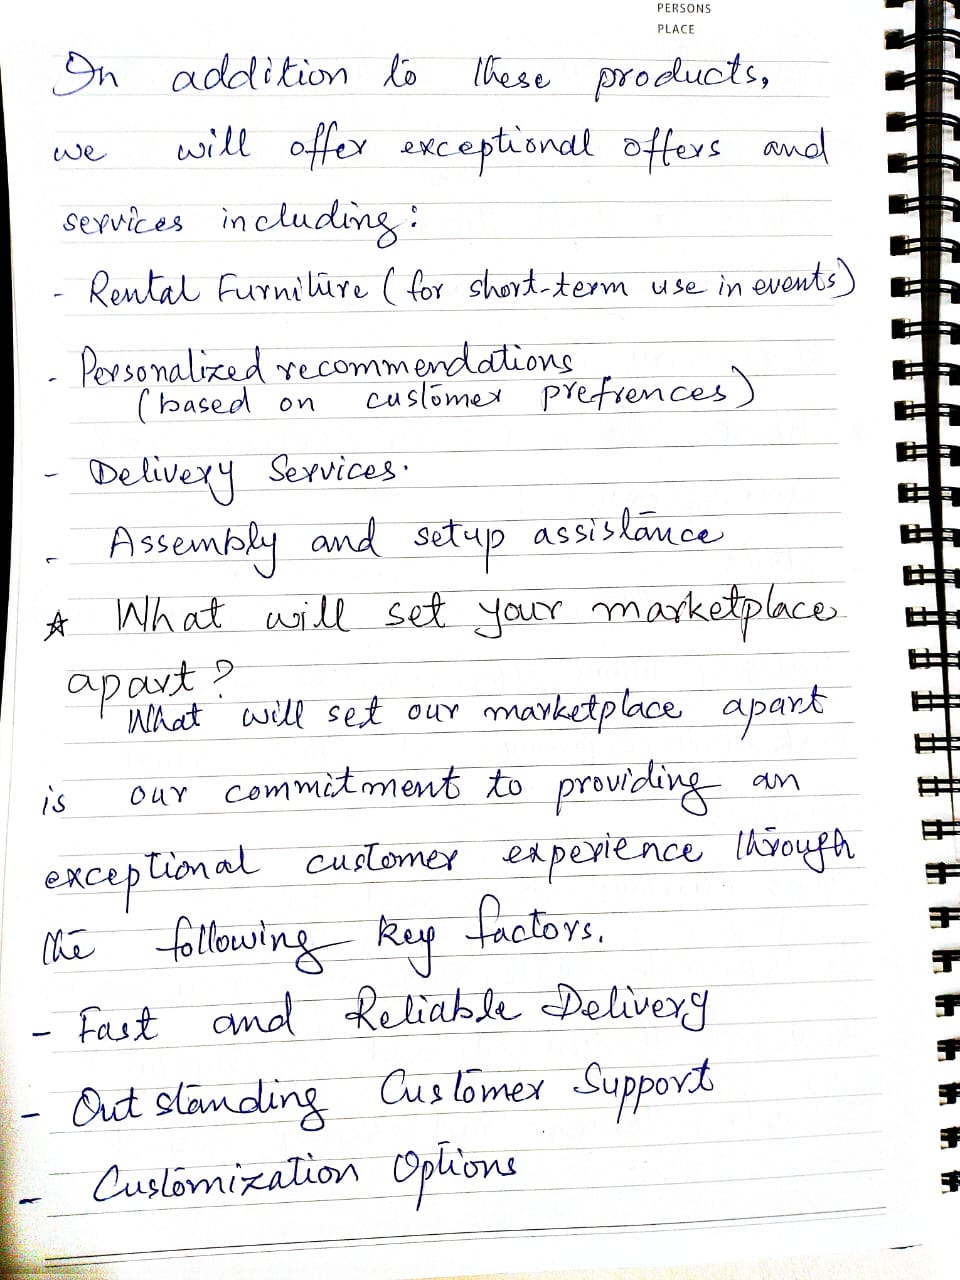 PERSONS
PLACE
In addition to these products,
we will offer exceptional offers and
services including:
- Rental Furniture (for short-term use in events)
- Personalized recommendations
(based on customer prefrences)
- Delivery Services.
- Assembly and setup assistance
☆ What will set your marketplace
apart?
What will set our marketplace apart
is our commitment to providing an
exceptional customer experience through
the following key factors.
- Fast and Reliable Delivery
- Outstanding Customer Support
- Customization Options